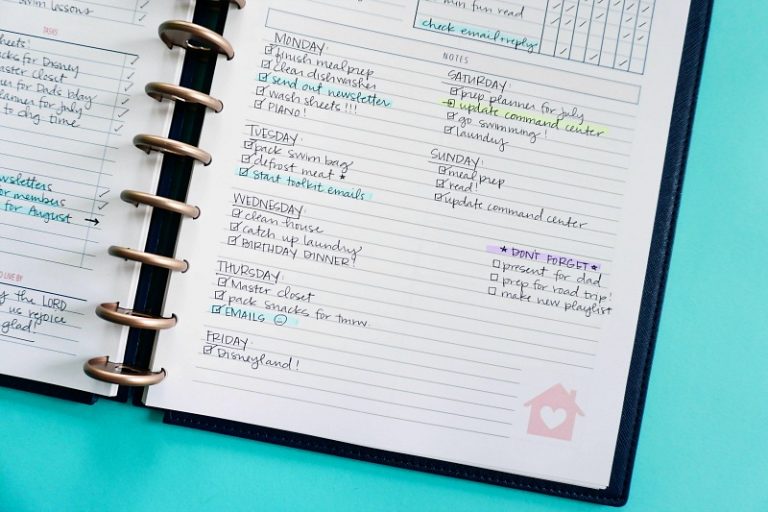 swim lessons
TASKS
sheets!
cks for Disney
aster closet
er for Dad's bday
planner for July
to chg time
wsletters
or members
for August →
LIVE BY
the LORD
us rejoice
glad!
min fun read
check email + reply
NOTES
MONDAY:
finish meal prep
clean dishwasher
send out newsletter
wash sheets!!!
PIANO!
TUESDAY:
pack swim bag
defrost meat ★
start toolkit emails
WEDNESDAY:
clean house
catch up laundry
BIRTHDAY DINNER!
THURSDAY:
Master closet
pack snacks for tmrw.
EMAILS ☺
FRIDAY:
Disneyland!
SATURDAY:
prep planner for July
update command center
go swimming!
laundry
SUNDAY:
meal prep
read!
update command center
★ DON'T FORGET ★
present for dad
prep for road trip!
make new playlist